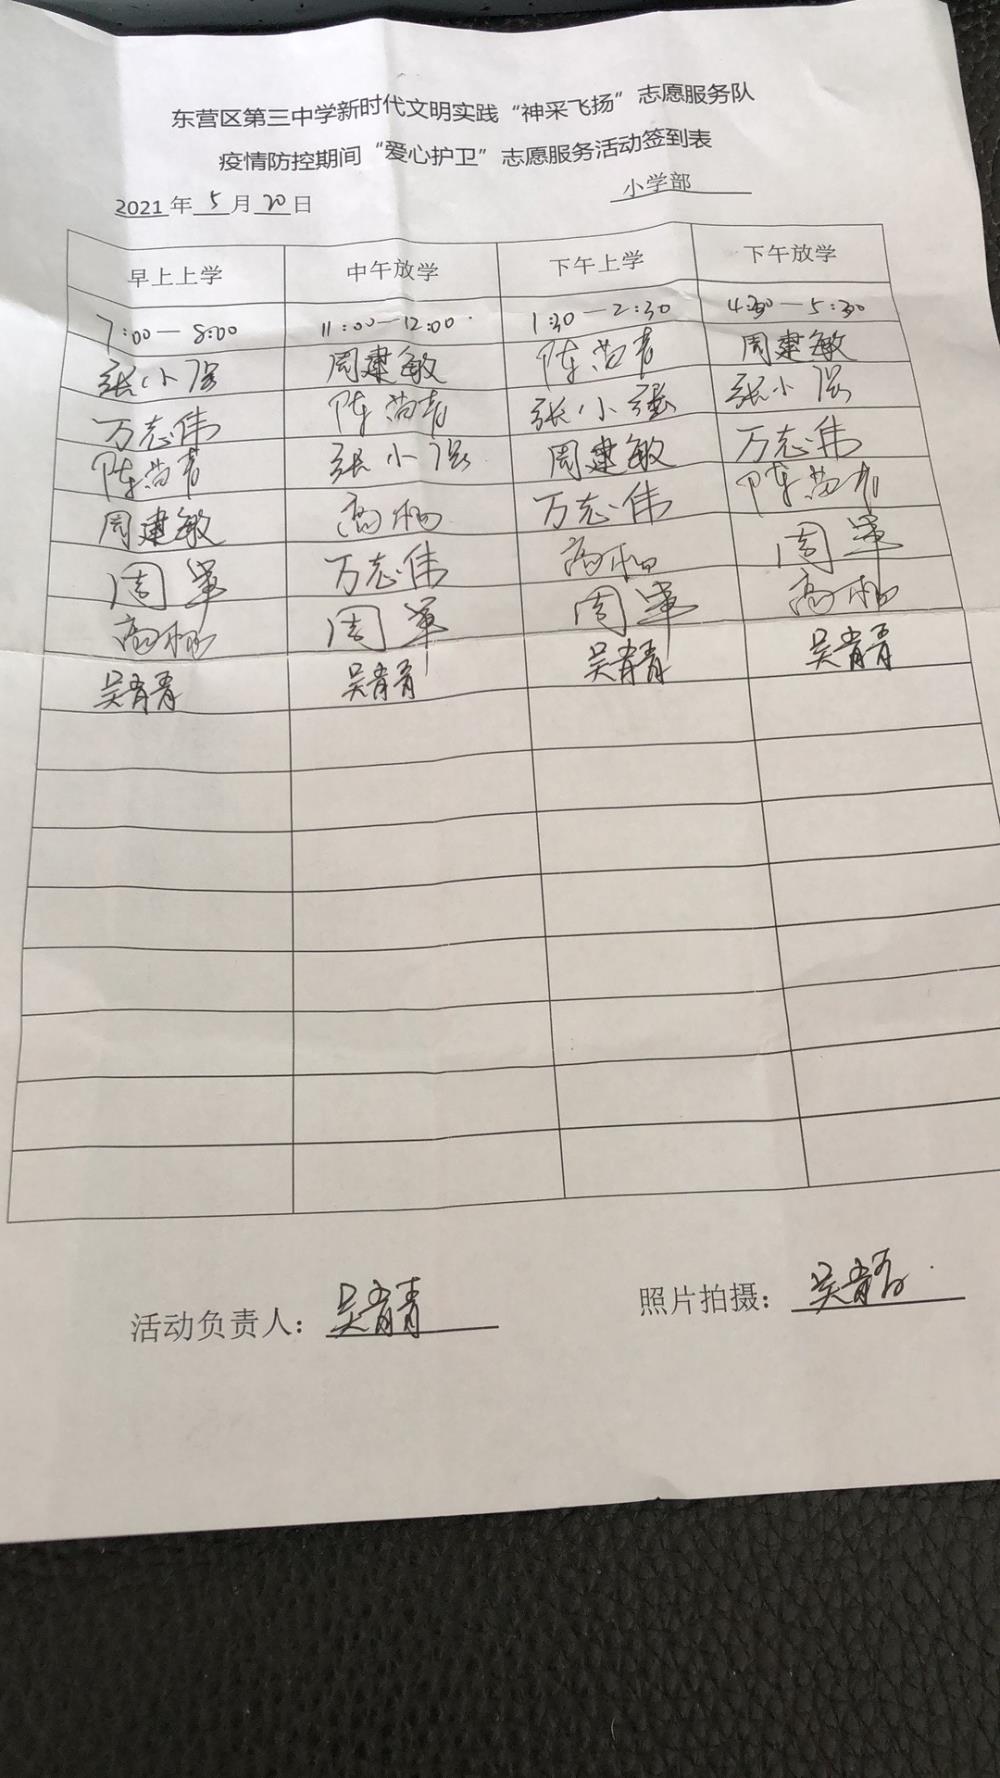 东营区第三中学新时代文明实践“神采飞扬”志愿服务队
疫情防控期间“爱心护卫”志愿服务活动签到表
2021年 5 月 20 日 小学部
早上上学 中午放学 下午上学 下午放学
7:00—8:00 11:00—12:00 1:30—2:30 4:30—5:30
张小强 周建敏 陈苗青 周建敏
万志伟 陈苗青 张小强 张小强
陈苗青 张小强 周建敏 万志伟
周建敏 高杨 万志伟 陈苗青
周军 万志伟 高杨 周军
高杨 周军 周军 高杨
吴青青 吴青青 吴青青 吴青青
活动负责人：吴青青 照片拍摄：吴青青